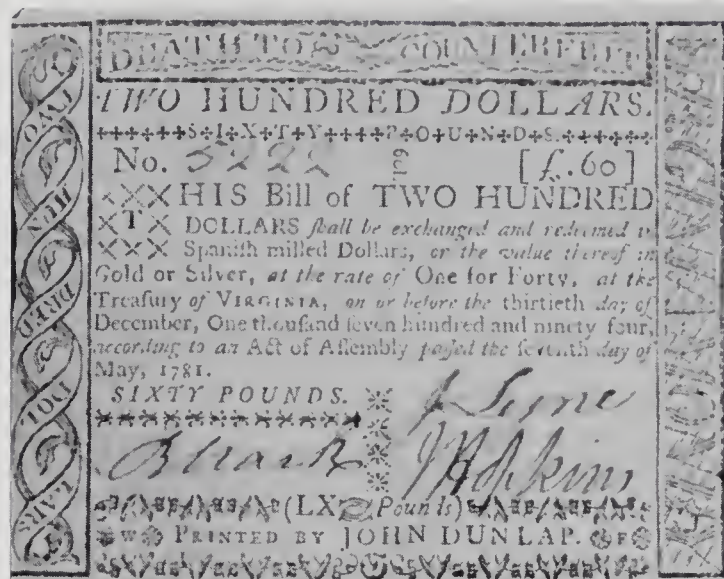 DEATH TO COUNTERFEIT
TWO HUNDRED DOLLARS.
S+I+X+T+Y++++P+O+U+N+D+S
No. [£.60]
HIS Bill of TWO HUNDRED
T DOLLARS shall be exchanged and redeemed in
Spanish milled Dollars, or the value thereof in
Gold or Silver, at the rate of One for Forty, at the
Treasury of VIRGINIA, on or before the thirtieth day of
December, One thousand seven hundred and ninety four,
according to an Act of Assembly passed the seventh day of
May, 1781.
SIXTY POUNDS.
J Hopkins
(LX Pounds)
W PRINTED BY JOHN DUNLAP. F
TWO HUN DRED DOL LARS